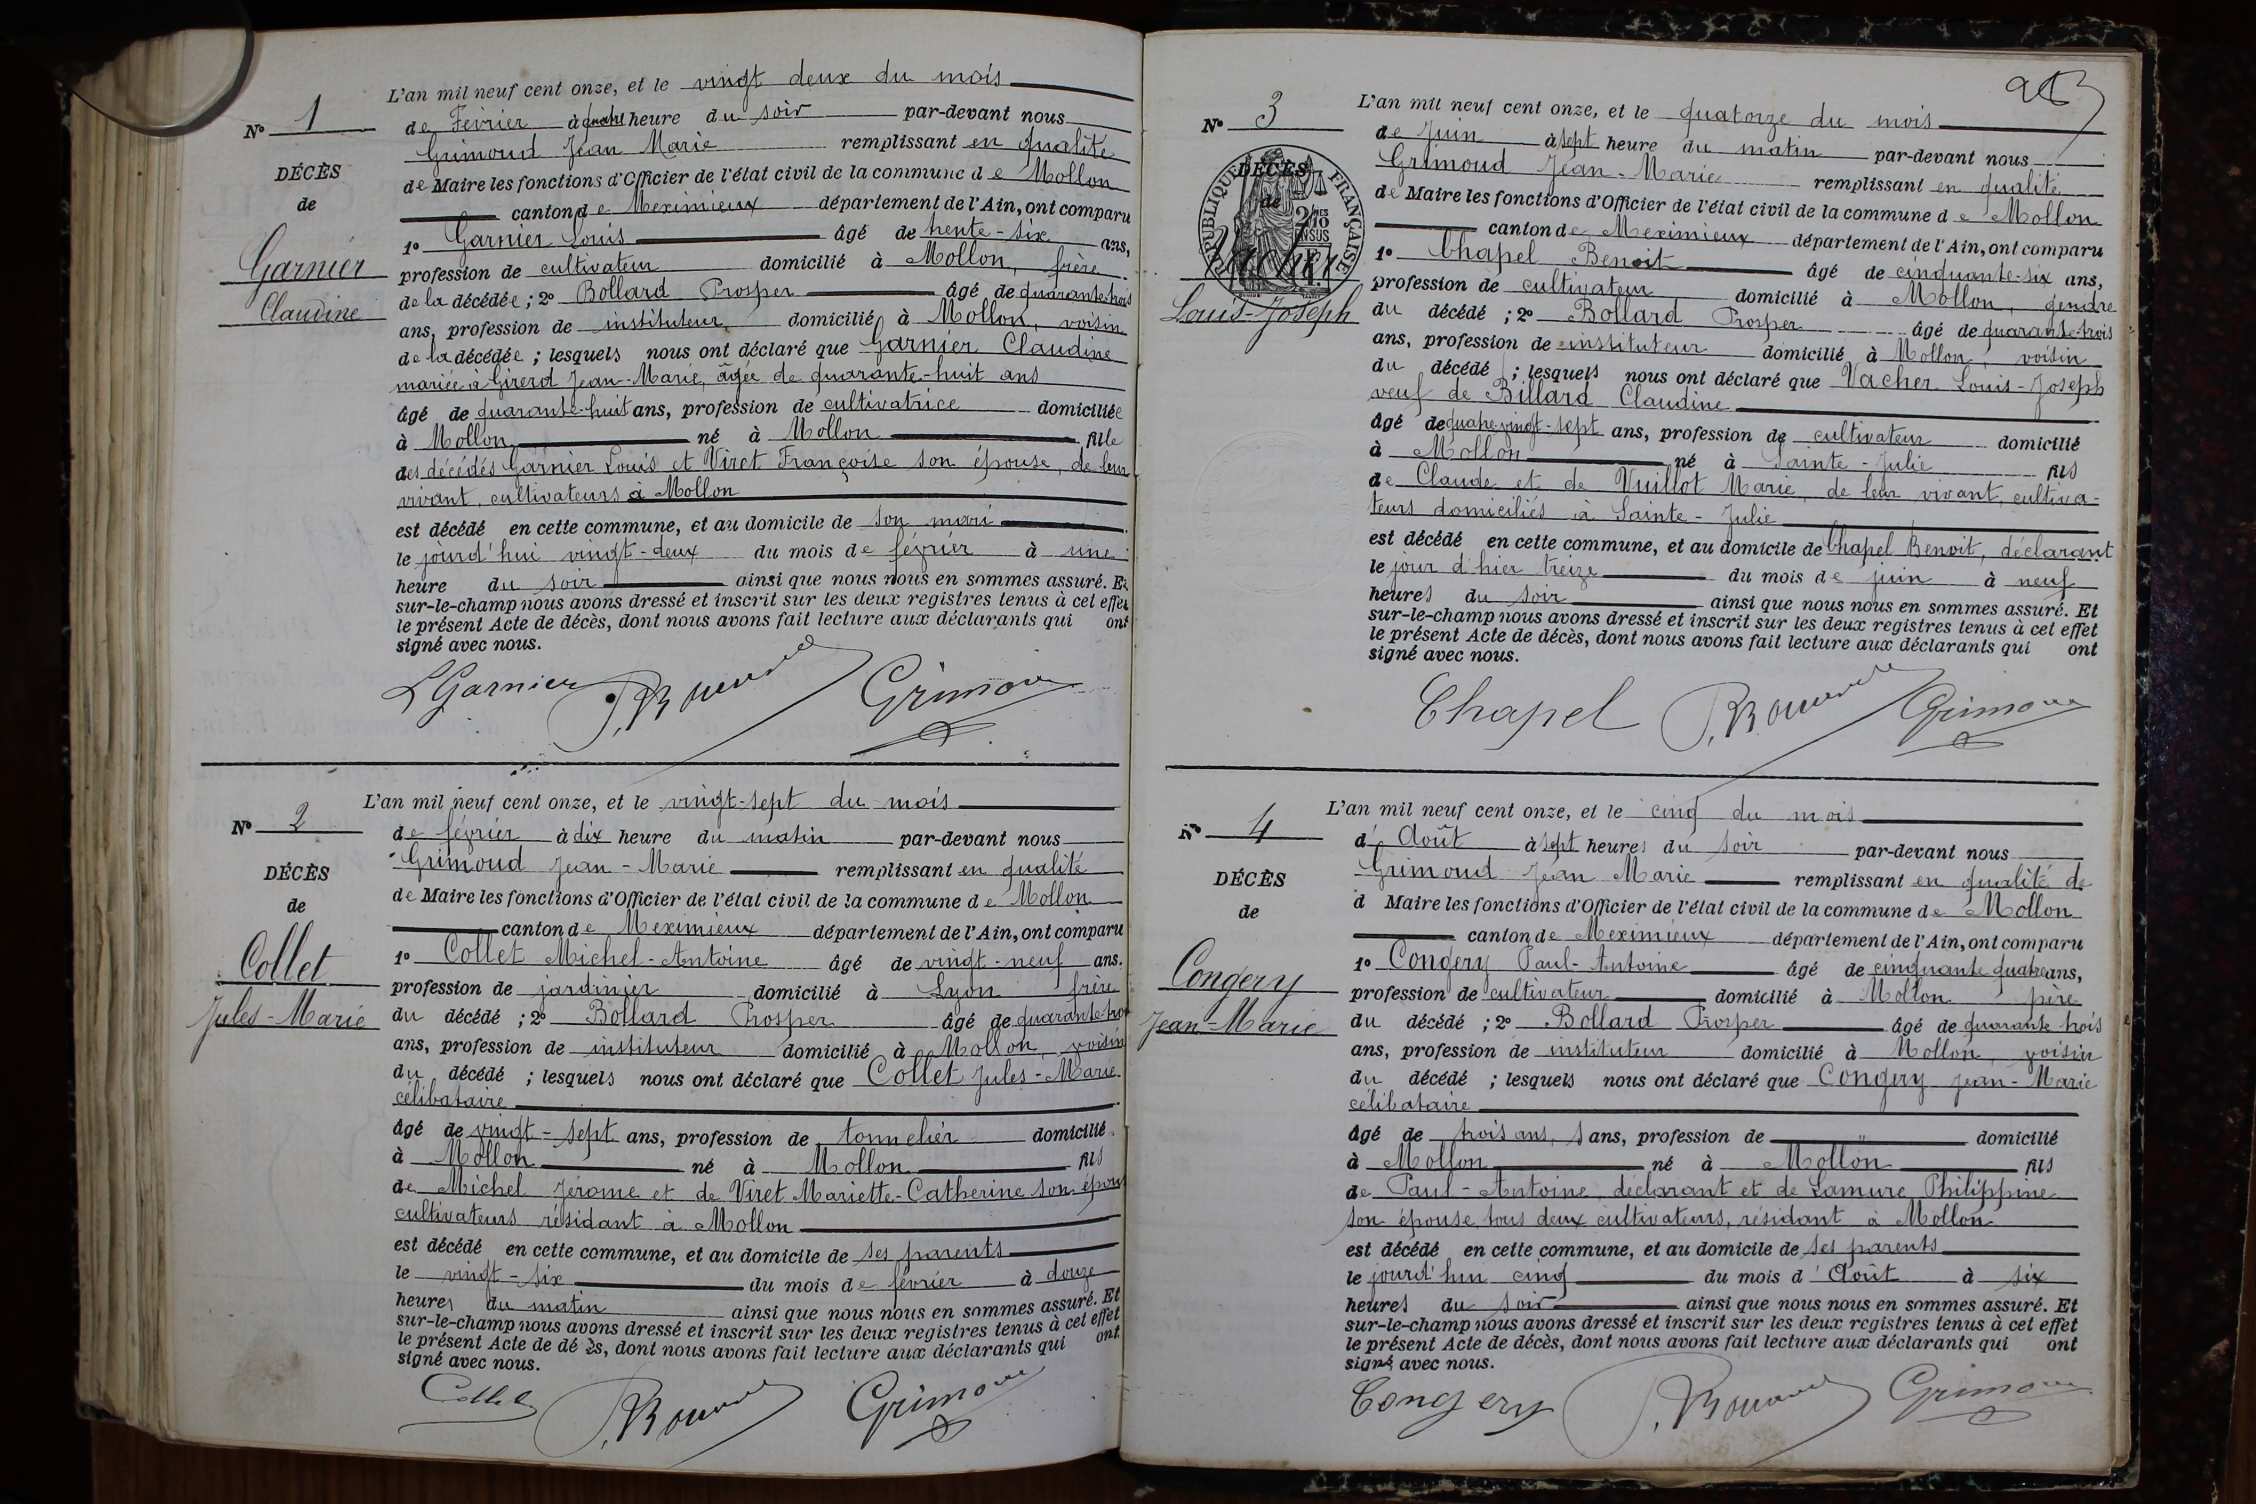 N° 1
DÉCÈS
de
Garnier
Claudine
L'an mil neuf cent onze, et le vingt deux du mois
de Février à quatre heure du soir par-devant nous
Grimoud Jean Marie remplissant en qualité
de Maire les fonctions d'Officier de l'état civil de la commune de Mollon
canton de Meximieux département de l'Ain, ont comparu
1° Garnier Louis âgé de trente-six ans,
profession de cultivateur domicilié à Mollon, frère
de la décédée ; 2° Bollard Prosper âgé de quarante-trois
ans, profession de instituteur domicilié à Mollon, voisin
de la décédée ; lesquels nous ont déclaré que Garnier Claudine
mariée à Girerd Jean-Marie, âgée de quarante-huit ans
âgé de quarante-huit ans, profession de cultivatrice domiciliée
à Mollon né à Mollon fille
des décédés Garnier Louis et Viret Françoise son épouse, de leur
vivant, cultivateurs à Mollon
est décédé en cette commune, et au domicile de son mari
le jourd'hui vingt-deux du mois de février à une
heure du soir ainsi que nous nous en sommes assuré. Et
sur-le-champ nous avons dressé et inscrit sur les deux registres tenus à cet effet
le présent Acte de décès, dont nous avons fait lecture aux déclarants qui ont
signé avec nous.
L Garnier Grimoud
N° 2
DÉCÈS
de
Collet
Jules-Marie
L'an mil neuf cent onze, et le vingt-sept du mois
de février à dix heure du matin par-devant nous
Grimoud Jean-Marie remplissant en qualité
de Maire les fonctions d'Officier de l'état civil de la commune de Mollon
canton de Meximieux département de l'Ain, ont comparu
1° Collet Michel-Antoine âgé de vingt-neuf ans.
profession de jardinier domicilié à Lyon frère
du décédé ; 2° Bollard Prosper âgé de quarante-trois
ans, profession de instituteur domicilié à Mollon, voisin
du décédé ; lesquels nous ont déclaré que Collet Jules-Marie
célibataire
âgé de vingt-sept ans, profession de tonnelier domicilié
à Mollon né à Mollon fils
de Michel Jérome et de Viret Mariette-Catherine son épouse
cultivateurs résidant à Mollon
est décédé en cette commune, et au domicile de ses parents
le vingt-six du mois de février à douze
heures du matin ainsi que nous nous en sommes assuré. Et
sur-le-champ nous avons dressé et inscrit sur les deux registres tenus à cet effet
le présent Acte de dé ès, dont nous avons fait lecture aux déclarants qui ont
signé avec nous.
Collet Grimoud
N° 3
DÉCÈS
de
RÉPUBLIQUE FRANÇAISE
2/10
EN SUS
Vacher
Louis-Joseph
L'an mil neuf cent onze, et le quatorze du mois
de Juin à sept heure du matin par-devant nous
Grimoud Jean-Marie remplissant en qualité
de Maire les fonctions d'Officier de l'état civil de la commune de Mollon
canton de Meximieux département de l'Ain, ont comparu
1° Chapel Benoit âgé de cinquante-six ans,
profession de cultivateur domicilié à Mollon, gendre
du décédé ; 2° Bollard Prosper âgé de quarante-trois
ans, profession de instituteur domicilié à Mollon, voisin
du décédé ; lesquels nous ont déclaré que Vacher Louis-Joseph
veuf de Billard Claudine
âgé de quatre-vingt-sept ans, profession de cultivateur domicilié
à Mollon né à Sainte-Julie fils
de Claude et de Vuillot Marie, de leur vivant, cultiva-
teurs domiciliés à Sainte-Julie
est décédé en cette commune, et au domicile de Chapel Benoit, déclarant
le jour d'hier treize du mois de juin à neuf
heures du soir ainsi que nous nous en sommes assuré. Et
sur-le-champ nous avons dressé et inscrit sur les deux registres tenus à cet effet
le présent Acte de décès, dont nous avons fait lecture aux déclarants qui ont
signé avec nous.
Chapel Grimoud
N° 4
DÉCÈS
de
Congery
Jean-Marie
L'an mil neuf cent onze, et le cinq du mois
d'Août à sept heures du soir par-devant nous
Grimoud Jean Marie remplissant en qualité de
d Maire les fonctions d'Officier de l'état civil de la commune de Mollon
canton de Meximieux département de l'Ain, ont comparu
1° Congery Paul-Antoine âgé de cinquante quatre ans,
profession de cultivateur domicilié à Mollon père
du décédé ; 2° Bollard Prosper âgé de quarante trois
ans, profession de instituteur domicilié à Mollon, voisin
du décédé ; lesquels nous ont déclaré que Congery Jean-Marie
célibataire
âgé de trois ans, ans, profession de " domicilié
à Mollon né à Mollon fils
de Paul-Antoine, déclarant et de Lamure Philippine
son épouse tous deux cultivateurs, résidant à Mollon
est décédé en cette commune, et au domicile de ses parents
le jourd'hui cinq du mois d'Août à six
heures du soir ainsi que nous nous en sommes assuré. Et
sur-le-champ nous avons dressé et inscrit sur les deux registres tenus à cet effet
le présent Acte de décès, dont nous avons fait lecture aux déclarants qui ont
signé avec nous.
Congery Grimoud